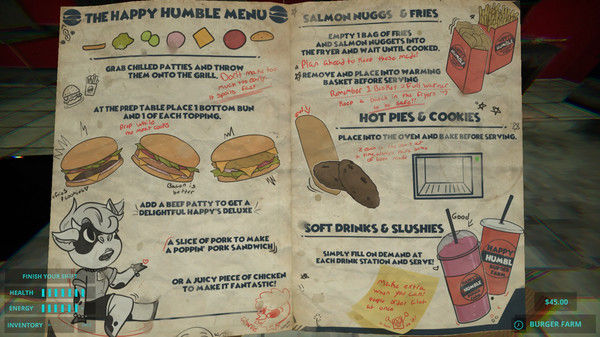 THE HAPPY HUMBLE MENU
GRAB CHILLED PATTIES AND THROW
THEM ONTO THE GRILL.
Don't make too
much too early
it spoils fast
AT THE PREP TABLE PLACE 1 BOTTOM BUN
AND 1 OF EACH TOPPING.
Prep while
the meat cooks
Bacon is
better
ADD A BEEF PATTY TO GET A
DELIGHTFUL HAPPY'S DELUXE
A SLICE OF PORK TO MAKE
A POPPIN' PORK SANDWICH
OR A JUICY PIECE OF CHICKEN
TO MAKE IT FANTASTIC!
SALMON NUGGS & FRIES
EMPTY 1 BAG OF FRIES
AND SALMON NUGGETS INTO
THE FRYER AND WAIT UNTIL COOKED.
Plan ahead to keep these made!
REMOVE AND PLACE INTO WARMING
BASKET BEFORE SERVING
Remember 1 Basket = Full warmer
Keep a batch in the fryers
HOT PIES & COOKIES
PLACE INTO THE OVEN AND BAKE BEFORE SERVING.
SOFT DRINKS & SLUSHIES
SIMPLY FILL ON DEMAND AT
EACH DRINK STATION AND SERVE!
Good
HAPPY
HUMBLE
BURGER
FARM
HUMBLE
Make extra
when you can!
at once
FINISH YOUR SHIFT
HEALTH
ENERGY
INVENTORY
$45.00
BURGER FARM